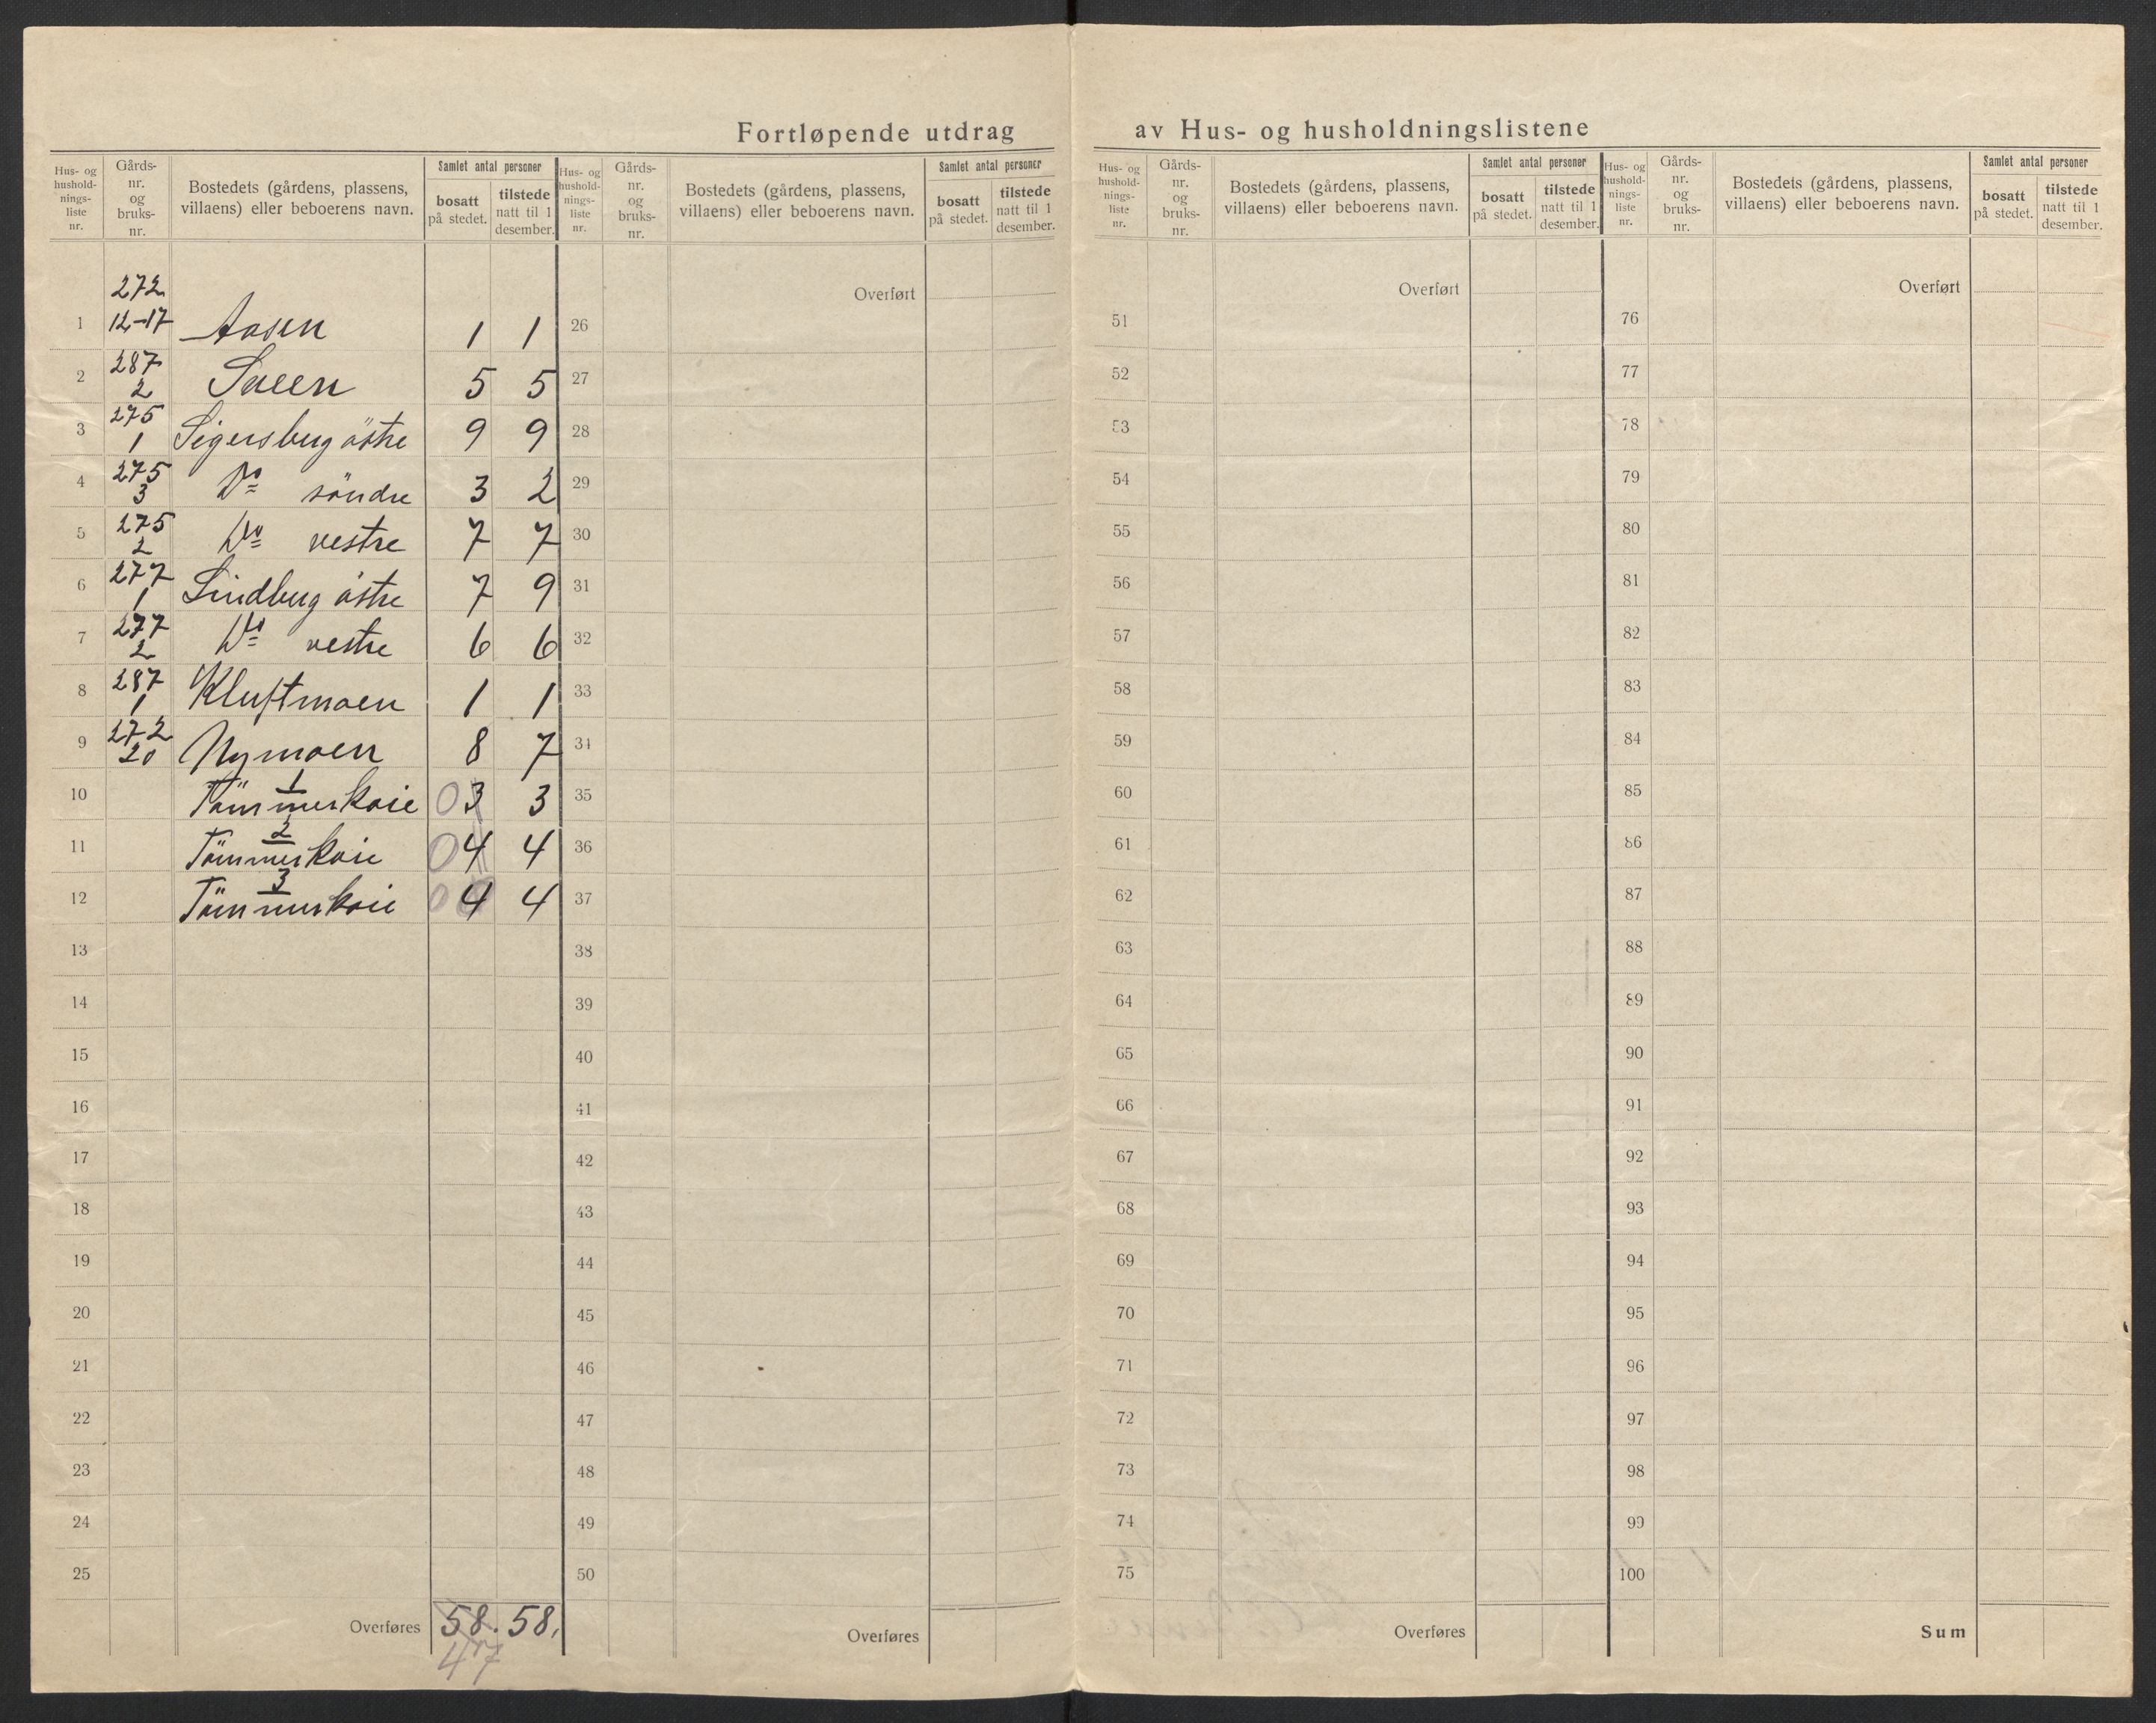 Fortløpende utdrag av Hus- og husholdningslistene
Hus- og husholdnings-liste nr. Gårds-nr. og bruks-nr. Bostedets (gårdens, plassens, villaens) eller beboerens navn. Samlet antal personer bosatt på stedet. tilstede natt til 1 desember.
Hus- og husholdnings-liste nr. Gårds-nr. og bruks-nr. Bostedets (gårdens, plassens, villaens) eller beboerens navn. Samlet antal personer bosatt på stedet. tilstede natt til 1 desember.
Hus- og husholdnings-liste nr. Gårds-nr. og bruks-nr. Bostedets (gårdens, plassens, villaens) eller beboerens navn. Samlet antal personer bosatt på stedet. tilstede natt til 1 desember.
Hus- og husholdnings-liste nr. Gårds-nr. og bruks-nr. Bostedets (gårdens, plassens, villaens) eller beboerens navn. Samlet antal personer bosatt på stedet. tilstede natt til 1 desember.
1 272 12-17 Aasen 1 1
2 287 2 Sveen 5 5
3 275 1 Sigersberg östre 9 9
4 275 3 Do söndre 3 2
5 275 2 Do vestre 7 7
6 277 1 Lindberg östre 7 9
7 277 2 Do vestre 6 6
8 287 1 Kluftmoen 1 1
9 272 20 Nymoen 8 7
10 Tömmerkoie 1 0 3 3
11 Tömmerkoie 2 0 4 4
12 Tömmerkoie 3 0 4 4
13
14
15
16
17
18
19
20
21
22
23
24
25
Overføres 58. 58.
47
Overført
26
27
28
29
30
31
32
33
34
35
36
37
38
39
40
41
42
43
44
45
46
47
48
49
50
Overføres
Overført
51
52
53
54
55
56
57
58
59
60
61
62
63
64
65
66
67
68
69
70
71
72
73
74
75
Overføres
Overført
76
77
78
79
80
81
82
83
84
85
86
87
88
89
90
91
92
93
94
95
96
97
98
99
100
Sum